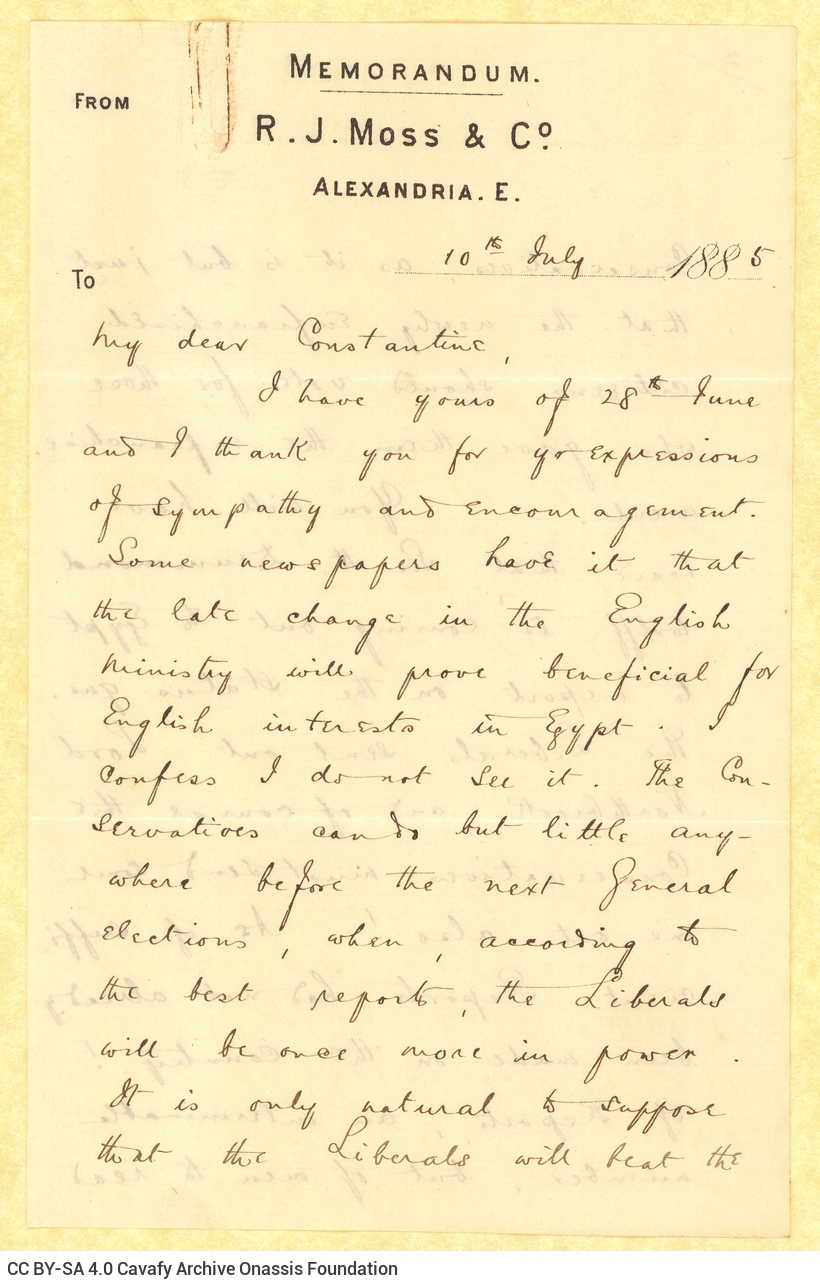 MEMORANDUM.
FROM
R. J. MOSS & Cº
ALEXANDRIA. E.
10th July 1885
To
My dear Constantine,
I have yours of 28th June
and I thank you for yr expressions
of sympathy and encouragement.
Some newspapers have it that
the late change in the English
ministry will prove beneficial for
English interests in Egypt. I
confess I do not see it. The Con-
servatives can do but little any-
where before the next General
elections, when, according to
the best reports, the Liberals
will be once more in power.
It is only natural to suppose
that the Liberals will beat the
CC BY-SA 4.0 Cavafy Archive Onassis Foundation